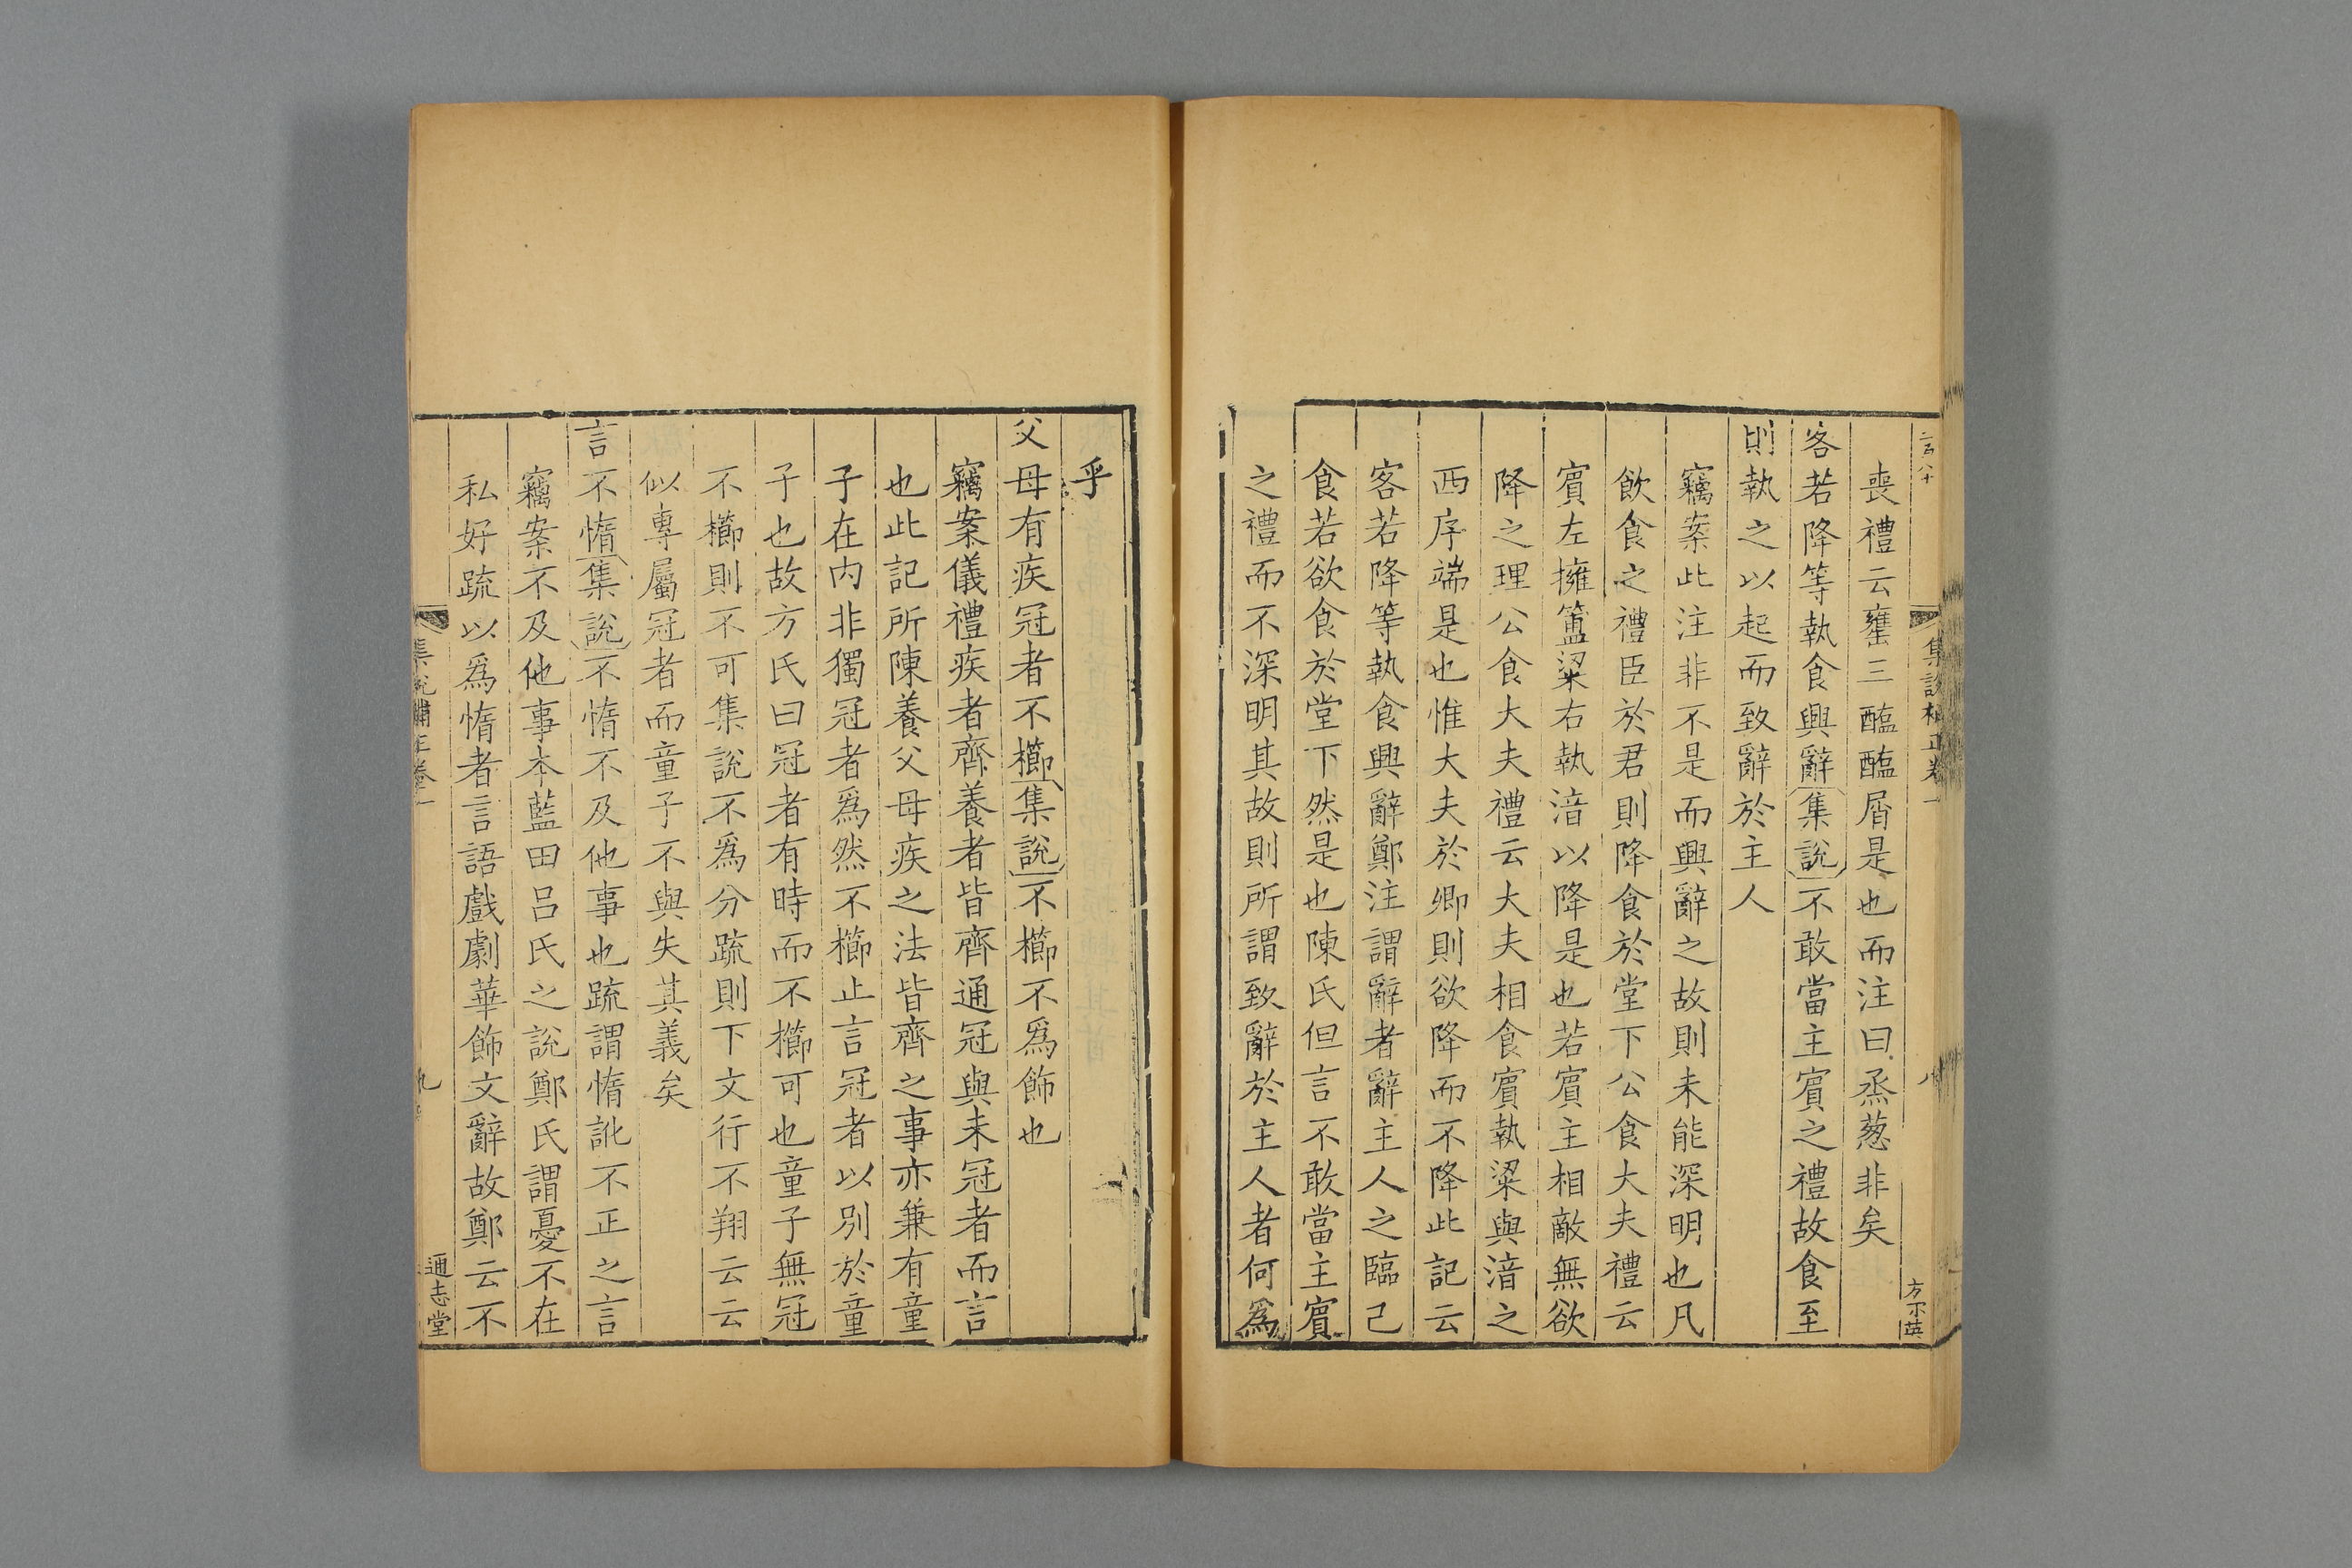 二百八十
集說補正卷一
八
方不英
喪禮云罋三醯醢屑是也而注曰烝葱非矣
客若降等執食興辭集說不敢當主賔之禮故食至
則執之以起而致辭於主人
竊案此注非不是而興辭之故則未能深明也凡
飲食之禮臣於君則降食於堂下公食大夫禮云
賔左擁簠粱右執湆以降是也若賔主相敵無欲
降之理公食大夫禮云大夫相食賔執粱與湆之
西序端是也惟大夫於卿則欲降而不降此記云
客若降等執食興辭鄭注謂辭者辭主人之臨己
食若欲食於堂下然是也陳氏但言不敢當主賔
之禮而不深明其故則所謂致辭於主人者何爲
乎
父母有疾冠者不櫛集說不櫛不爲飾也
竊案儀禮疾者齊養者皆齊通冠與未冠者而言
也此記所陳養父母疾之法皆齊之事亦兼有童
子在内非獨冠者爲然不櫛止言冠者以别於童
子也故方氏曰冠者有時而不櫛可也童子無冠
不櫛則不可集說不爲分疏則下文行不翔云云
似專屬冠者而童子不與失其義矣
言不惰集說不惰不及他事也疏謂惰訛不正之言
竊案不及他事本藍田吕氏之說鄭氏謂憂不在
私好疏以爲惰者言語戲劇華飾文辭故鄭云不
集說補正卷一
九
通志堂